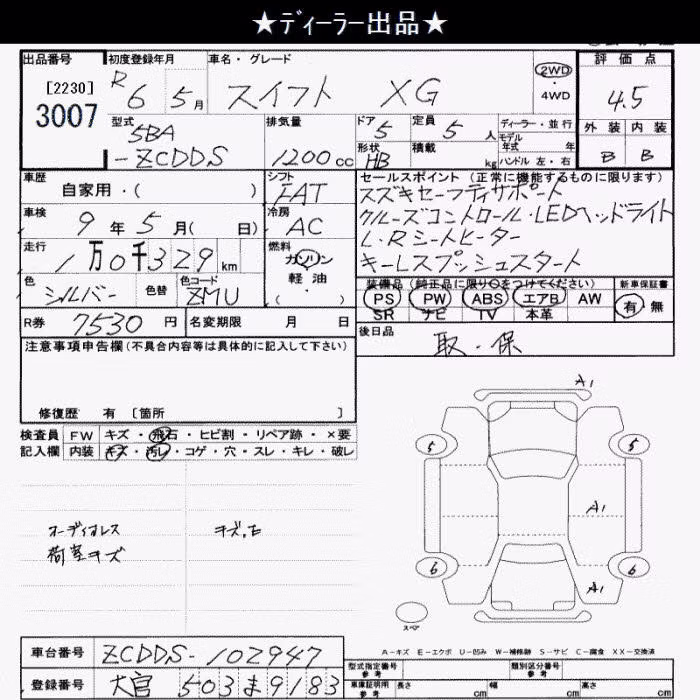 ★ディーラー出品★
出品番号 初度登録年月 車名・グレード 評価点
[2230] R6 5月 スイフト XG 2WD・4WD 4.5
3007
型式 排気量 ドア 定員 ディーラー・並行 外装 内装
5BA 5 5人 モデル年式 年
-ZCDDS 1200cc 形状 HB 積載 kg ハンドル 左・右 B B
車歴 シフト セールスポイント(正常に機能するものに限ります)
自家用・( ) FAT スズキセーフティサポート
車検 9年5月( 日) 冷房 AC クルーズコントロール・LEDヘッドライト
走行 1万0千329km 燃料 ガソリン L・Rシートヒーター
軽油 キーレスプッシュスタート
色 シルバー 色替 色コード ZMU ( ) 装備品(純正品に限り○をつけてください) 新車保証書
PS PW ABS エアB AW 有・無
R券 7530円 名変期限 月 日 SR ナビ TV 本革
注意事項申告欄(不具合内容等は具体的に記入して下さい) 後日品 取・保
修復歴 有 [箇所 ]
検査員 FW キズ・飛石・ヒビ割・リペア跡・×要
記入欄 内装 キズ・汚レ・コゲ・穴・スレ・キレ・破レ
A1
5 5
A1
オーディオレス キズ,E
荷室キズ
6 6
A1
スペア
A-キズ E-エクボ U-凹み W-補修跡 S-サビ C-腐食 XX-交換済
車台番号 ZCDDS-102947 型式指定番号 参考 類別区分番号 参考
登録番号 大宮 503 ま 9183 車庫証明用 参考 長さ cm 幅 cm 高さ cm